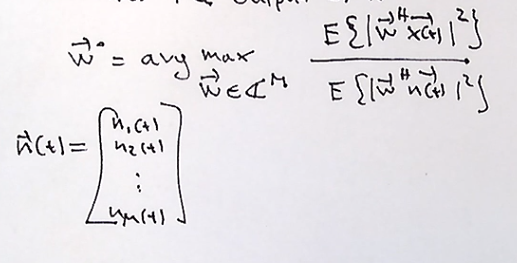 output
w⃗° = arg max w⃗∈ℂᴹ E{|w⃗ᴴx⃗(t)|²} / E{|w⃗ᴴn⃗(t)|²}
n⃗(t) = [n₁(t)
n₂(t)
⋮
n_M(t)]